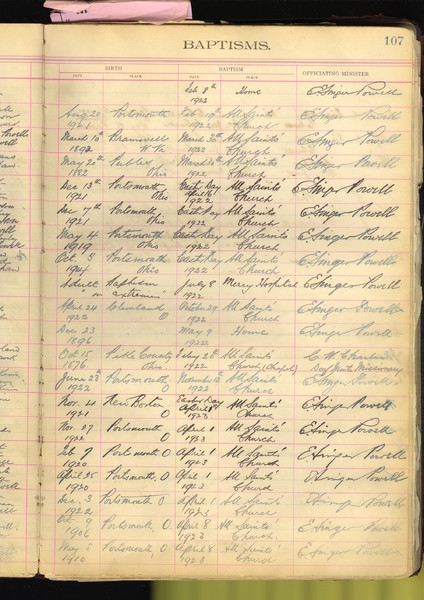 BAPTISMS.
107
BIRTH
BAPTISM
OFFICIATING MINISTER
DATE. PLACE DATE. PLACE.
Feb 8th Home E Ainger Powell
1922
Aug 20 Portsmouth Feb 19th All Saints E Ainger Powell
1921 1922 Church
March 10th Bramwell March 30th All Saints' E Ainger Powell
1892 W. Va. 1922 Church
May 20th Ohio All Saints' E Ainger Powell
1882 1922 Church
Dec 13th Portsmouth East Day All Saints E Ainger Powell
1921 Ohio April 16 1922 Church
Dec 7th Portsmouth East Day All Saints E Ainger Powell
1921 Ohio 1922 Church
May 4 Portsmouth East Day All Saints E Ainger Powell
1919 Ohio 1922 Church
Oct. 3 Portsmouth East Day All Saints' E Ainger Powell
1914 Ohio 1922 Church
Adult Baptism July 8 Mercy Hospital E Ainger Powell
in extremis 1922
April 24 Cleveland October 29 All Saints' E Ainger Powell
1922 O 1922 Church
Dec 23 May 9 Home E Ainger Powell
1896 1922
Oct 15 Pike County All Saints' C. W.
1876 Ohio 1922 Church (Chapel) Missionary
June 28th Portsmouth November 12 All Saints' E Ainger Powell
1922 1922 Church
Nov. 4 New Boston Easter Day All Saints' E Ainger Powell
1921 O April 1st 1923 Church
Nov. 27 Portsmouth April 1 All Saints' E Ainger Powell
1922 O 1923 Church
Feb 7 Portsmouth O April 1 All Saints' E Ainger Powell
1920 1923 Church
April 25 Portsmouth, O April 1 All Saints' E Ainger Powell
1920 1923 Church
Dec. 3 Portsmouth O April 1 All Saints' E Ainger Powell
1922 1923 Church
Oct. 9 Portsmouth, O. April 8 All Saints' E Ainger Powell
1906 1923 Church.
May 5 Portsmouth, O. April 8 All Saints' E Ainger Powell
1910 1923 Church